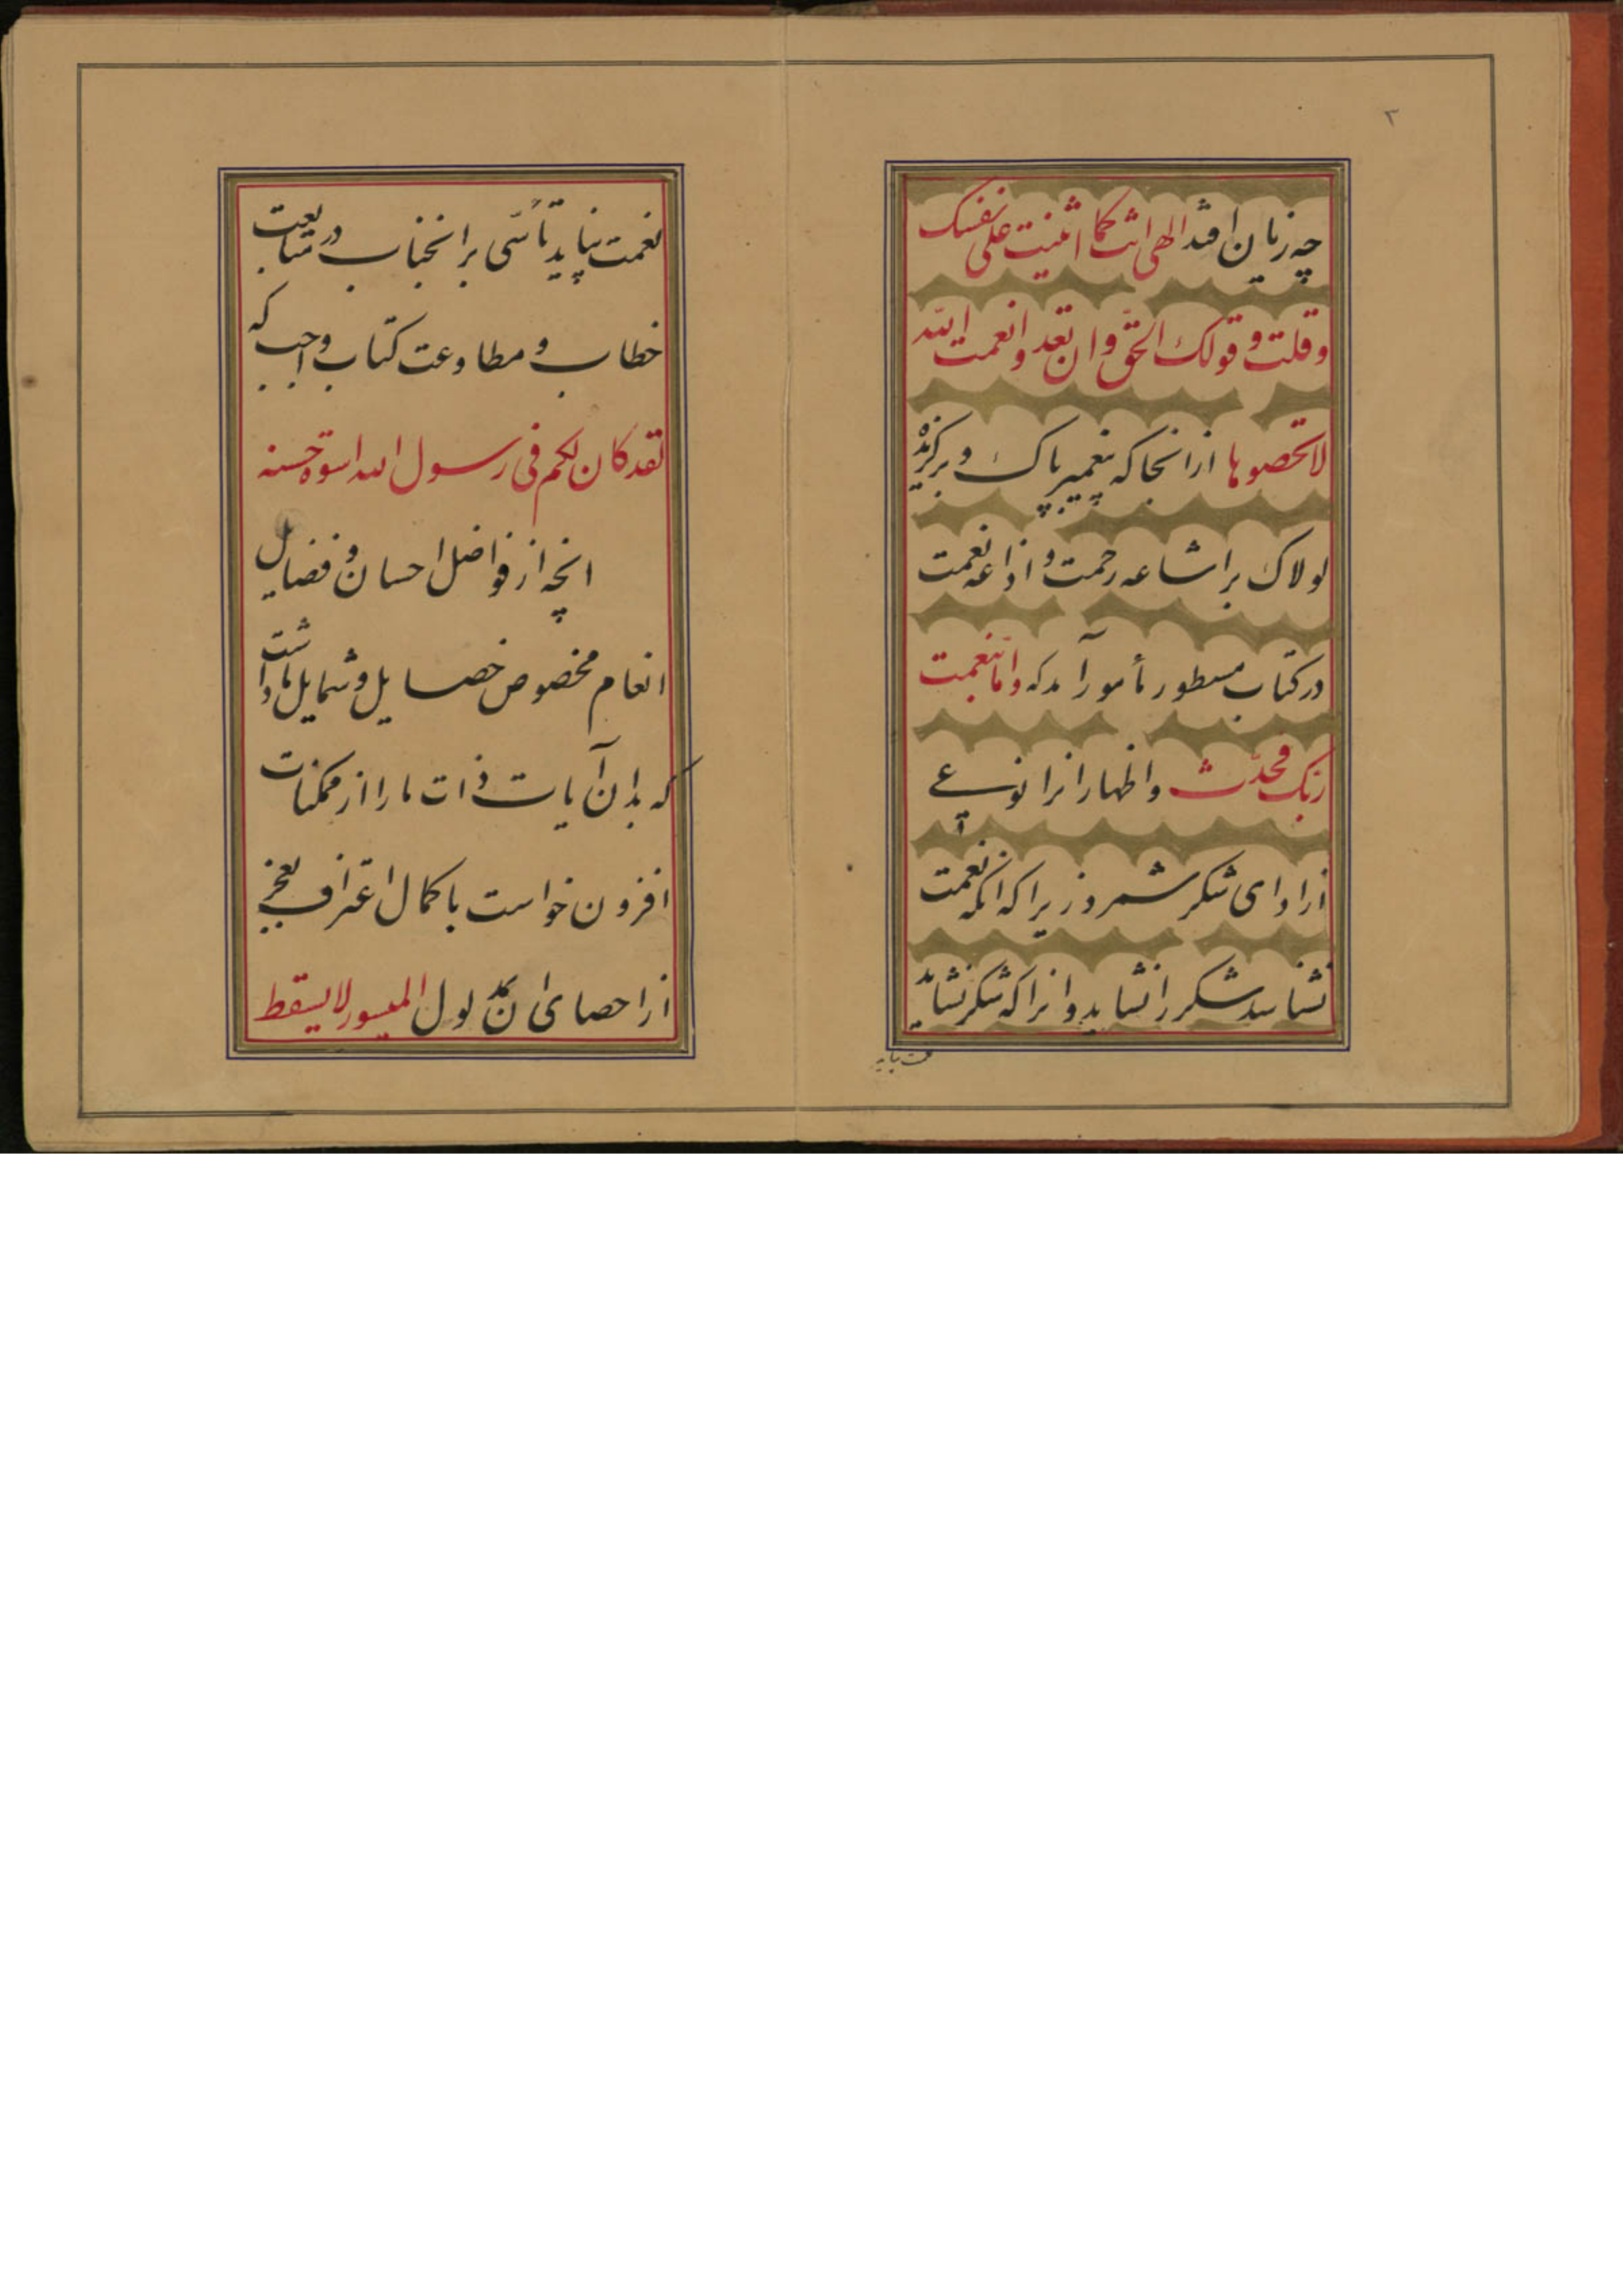 ۳
چه زیان افتد الهی انت کما اثنیت علی نفسک
و قلت و قولک الحق و ان تعدوا نعمت الله
لا تحصوها از انجا که پیغمبر پاک و برگزیده
لولاک بر اشاعه رحمت و اذاعه نعمت
در کتاب مسطور مأمور آمد که و اما بنعمت
ربک فحدث و اظهار انرا نوعی
از ادای شکر شمرد زیرا که انکه نعمت
نشناسد شکر را نشاید و انرا که شکر نشاید
نعمت نپاید تأسّی بر انجناب در متابعت
خطاب و مطاوعت کتاب واجب که
لقد کان لکم فی رسول الله اسوة حسنه
انچه از فواضل احسان و فضایل
انعام مخصوص خصایل و شمایل ما داشت
که بدان آیات ذات ما را از ممکنات
افزون خواست با کمال اعتراف بعجز
از احصای ان بمدلول المیسور لا یسقط